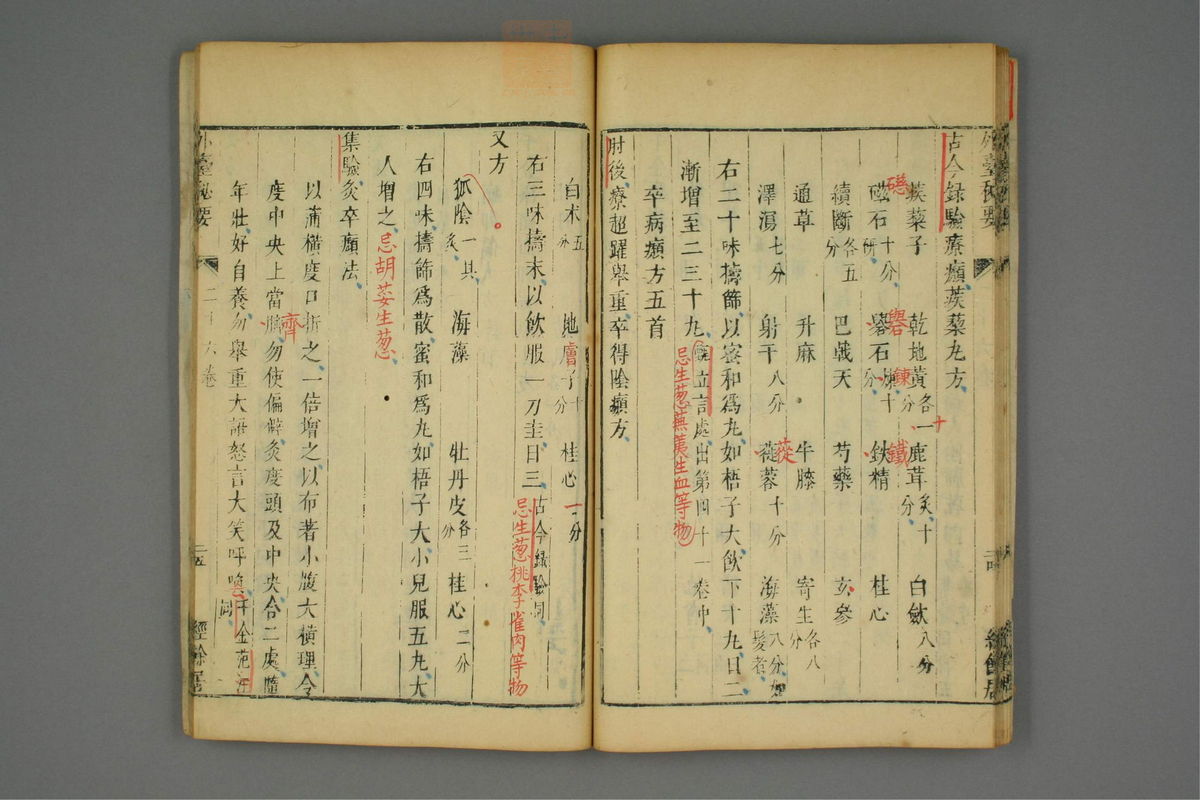 外臺秘要
古今録驗療㿗蒺藜丸方
蒺藜子 乾地黃各一分 鹿茸炙十分 白歛八分
十
磁石十分研 礜石煉十分 鉄精 桂心
礠 礜 鍊 鐵
續斷各五分 巴戟天 芍藥 玄參
通草 升麻 牛膝 寄生各八分
澤瀉七分 射干八分 蓯蓉十分 海藻八分如髮者
蓯
右二十味擣篩以蜜和爲丸如梧子大飲下十丸日二
漸增至二三十丸 立言處出第四十一卷中
忌生葱蕪荑生血等物
卒病㿗方五首
肘後療超躍舉重卒得陰㿗方
白朮五分 地膚子十分 桂心一分
右三味擣末以飲服一刀圭日三古今録驗同
忌生葱桃李雀肉等物
又方
狐陰一具炙 海藻 牡丹皮各三分 桂心二分
右四味擣篩爲散蜜和爲丸如梧子大小兒服五丸大
人增之
忌胡荽生葱
集驗灸卒㿗法
以蒲橫度口折之一倍增之以布著小腹大橫理令
度中央上當臍勿使偏僻灸度頭及中央合二處隨
齊
年壯好自養勿舉重大語怒言大笑呼喚千金范汪同
外臺秘要 二十六卷 二五 經餘居